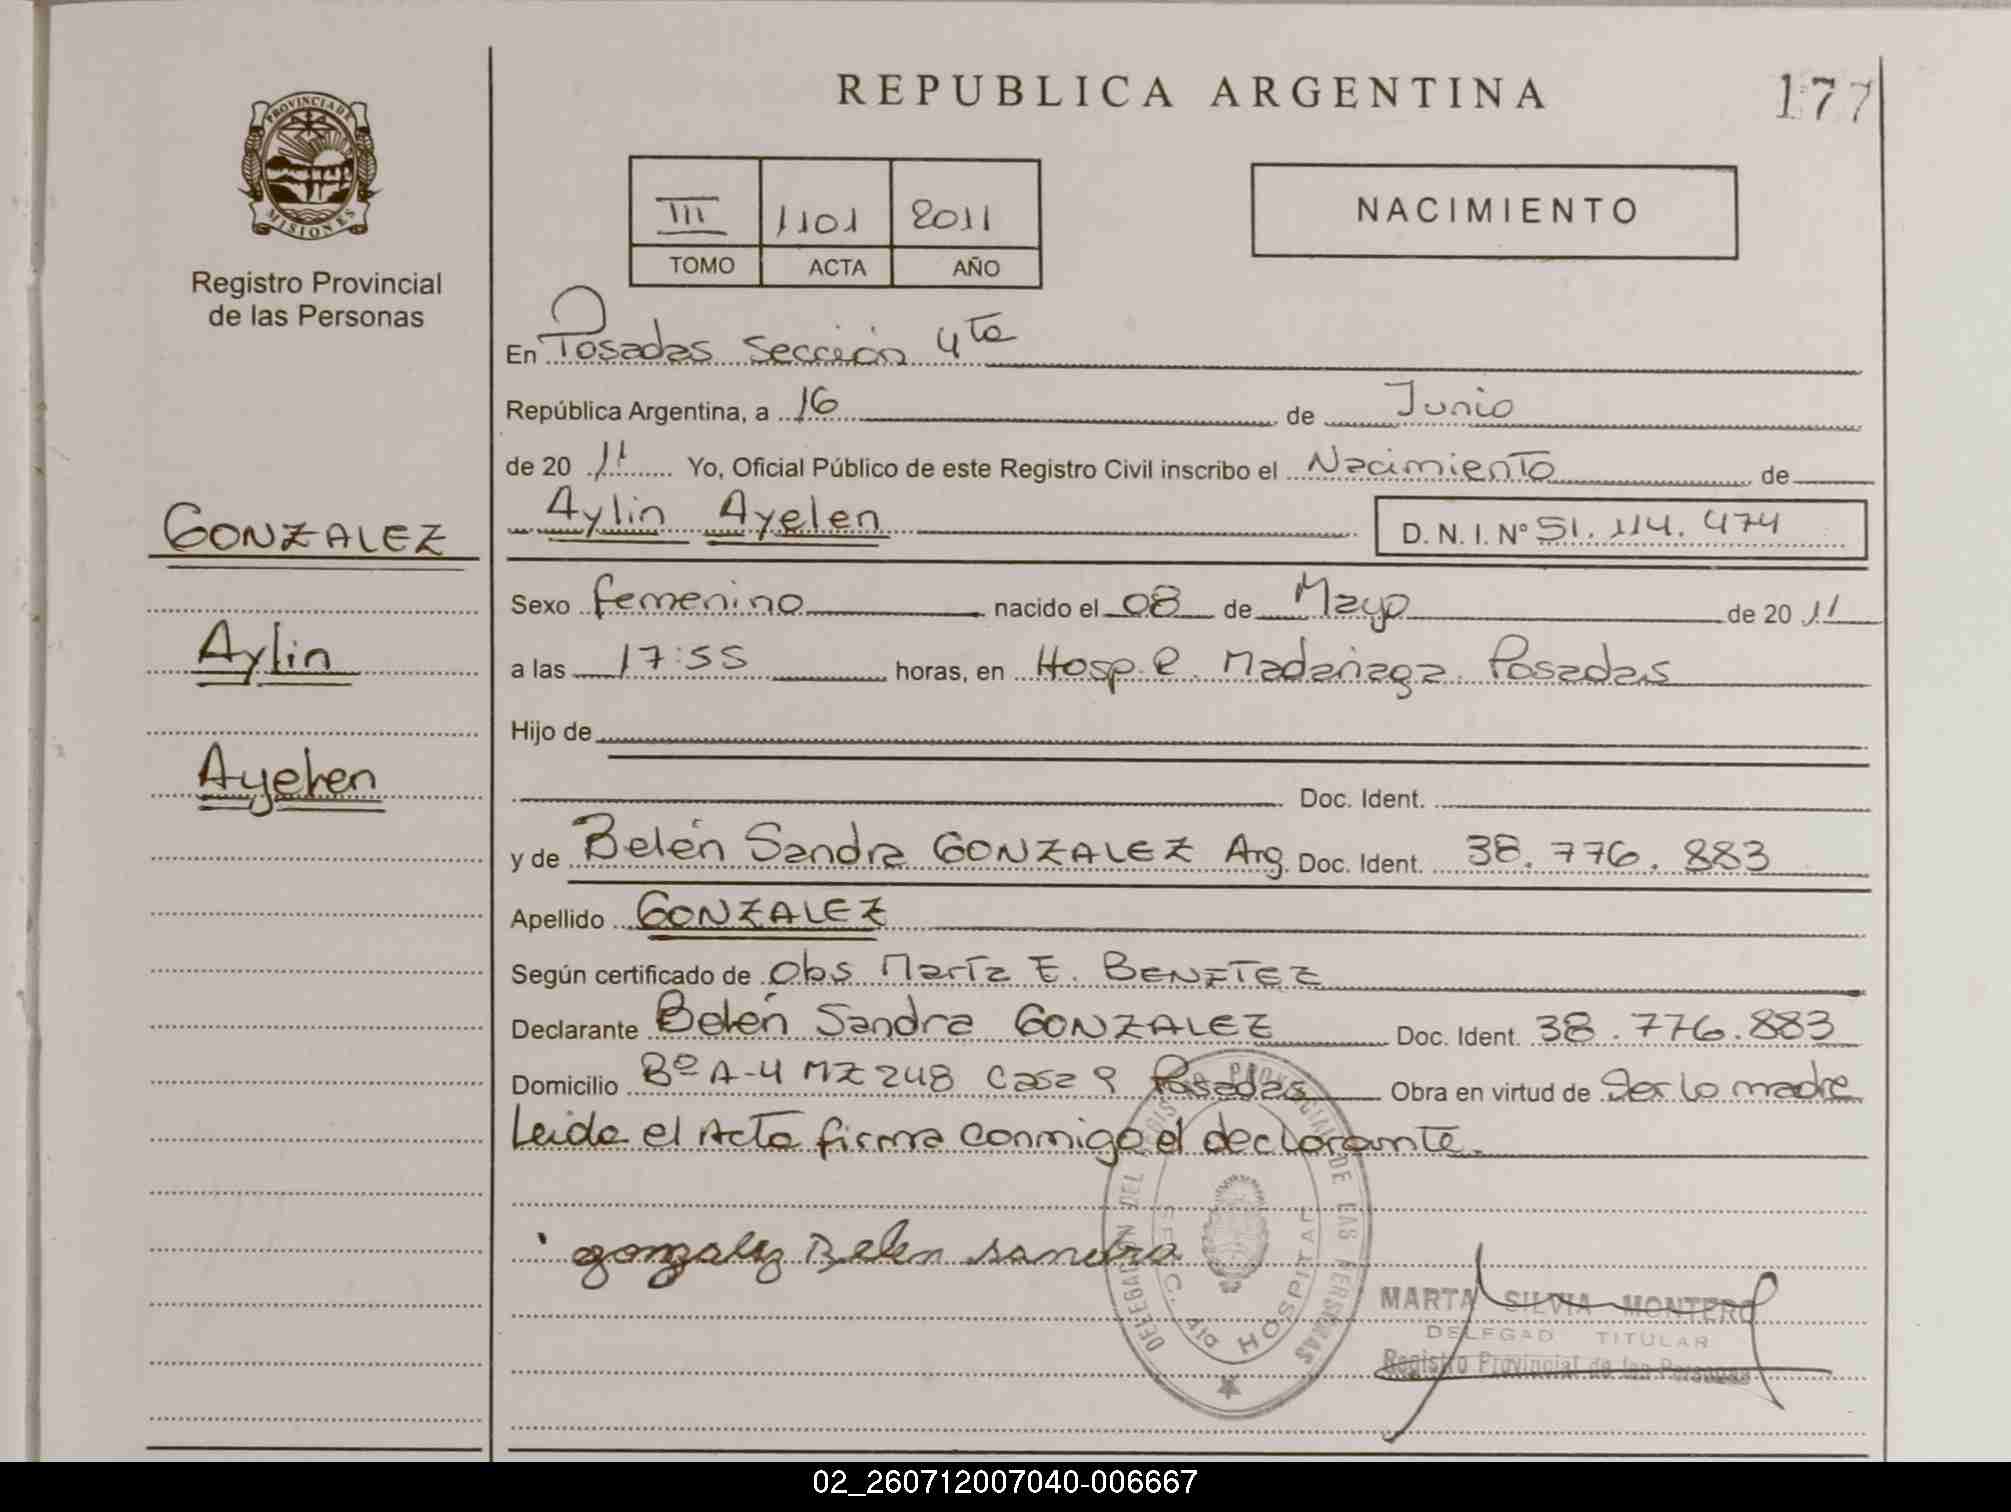 REPUBLICA ARGENTINA
177
PROVINCIA DE
MISIONES
Registro Provincial
de las Personas
III 1101 2011
TOMO ACTA AÑO
NACIMIENTO
En Posadas Sección 4ta
República Argentina, a 16 de Junio
de 20 11 Yo, Oficial Público de este Registro Civil inscribo el Nacimiento de
Aylin Ayelen
D. N. I. Nº 51.114.474
GONZALEZ
Aylin
Ayelen
Sexo femenino nacido el 08 de Mayo de 20 11
a las 17:55 horas, en Hosp. R. Madariaga. Posadas
Hijo de
Doc. Ident.
y de Belén Sandra GONZALEZ Arg. Doc. Ident. 38.776.883
Apellido GONZALEZ
Según certificado de Obs María E. BENITEZ
Declarante Belén Sandra GONZALEZ Doc. Ident. 38.776.883
Domicilio Bº A-4 MZ 248 Casa 9 Posadas Obra en virtud de Ser la madre
Leida el Acta firma conmigo el declarante.
gonzalez Belen sandra
DELEGACIÓN DEL REGISTRO PROVINCIAL DE LAS PERSONAS
SECC. DIV. HOSPITAL
MARTA SILVIA MONTERO
DELEGAD TITULAR
Registro Provincial de las Personas
02_260712007040-006667